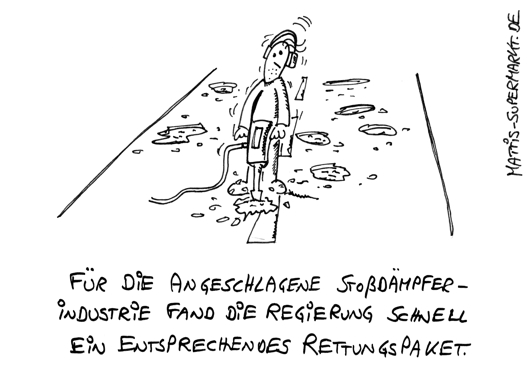 MATTIS-SUPERMARKT.DE
FÜR DIE ANGESCHLAGENE STOßDÄMPFER-
INDUSTRIE FAND DIE REGIERUNG SCHNELL
EIN ENTSPRECHENDES RETTUNGSPAKET.